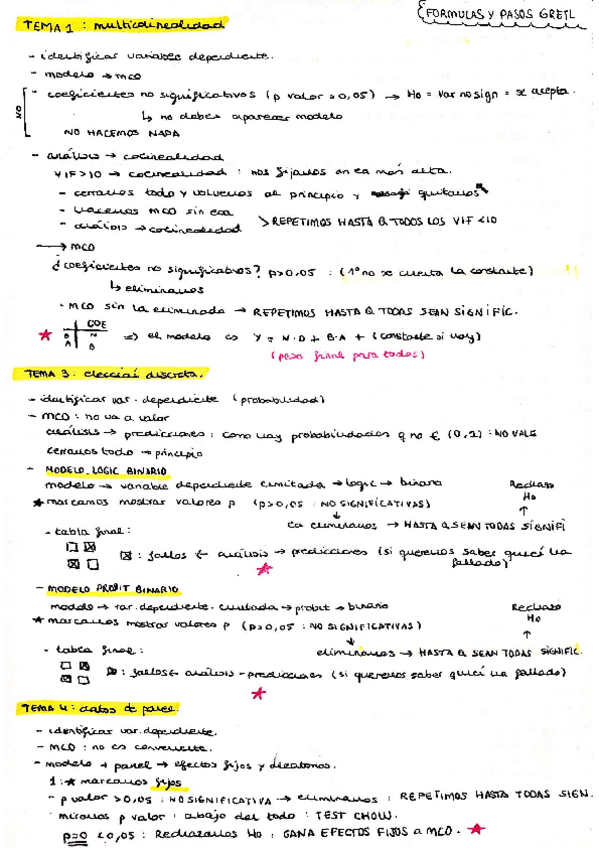 FORMULAS Y PASOS GRETL
TEMA 1: multicolinealidad
- identificar variable dependiente.
- modelo → MCO
- coeficientes no significativos (p valor > 0,05) → Ho = var no sign = se acepta.
↳ no deben aparecer modelo
NO
NO HACEMOS NADA
- análisis → colinealidad
VIF>10 → colinealidad : nos fijamos en la más alta.
- cerramos todo y volvemos al principio y quitamos
- hacemos MCO sin esa
- análisis → colinealidad
> REPETIMOS HASTA Q TODOS LOS VIF <10
→ MCO
¿coeficientes no significativos? p>0,05 : (1º no se cuenta la constante)
↳ eliminamos
- MCO sin la eliminada → REPETIMOS HASTA Q TODAS SEAN SIGNIFIC.
COE
D N
A B
⇒ el modelo es Y = N·D + B·A + (constante si hay)
(paso final para todos)
TEMA 3: elección discreta.
- identificar var. dependiente (probabilidad)
- MCO : no va a valer
análisis → predicciones : como hay probabilidades q no € (0,1) : NO VALE
cerramos todo → principio
- MODELO LOGIC BINARIO
modelo → variable dependiente limitada → logic → binario
Rechazo
Ho
* marcamos mostrar valores p (p>0,05 : NO SIGNIFICATIVAS)
la eliminamos → HASTA Q SEAN TODAS SIGNIFI
- tabla final:
: fallos ← análisis → predicciones (si queremos saber quién ha fallado)
- MODELO PROBIT BINARIO
modelo → var. dependiente limitada → probit → binario
Rechazo
Ho
* marcamos mostrar valores p (p>0,05 : NO SIGNIFICATIVAS)
eliminamos → HASTA Q SEAN TODAS SIGNIFIC.
- tabla final:
: fallos ← análisis - predicciones (si queremos saber quién ha fallado)
TEMA 4: datos de panel
- identificar var. dependiente.
- MCO : no es conveniente.
- modelo → panel → efectos fijos y aleatorios.
1: * marcamos fijos
- p valor > 0,05 : NO SIGNIFICATIVA → eliminamos : REPETIMOS HASTA TODAS SIGN.
miramos p valor : abajo del todo : TEST CHOW.
p=0 < 0,05 : Rechazamos Ho : GANA EFECTOS FIJOS a MCO.